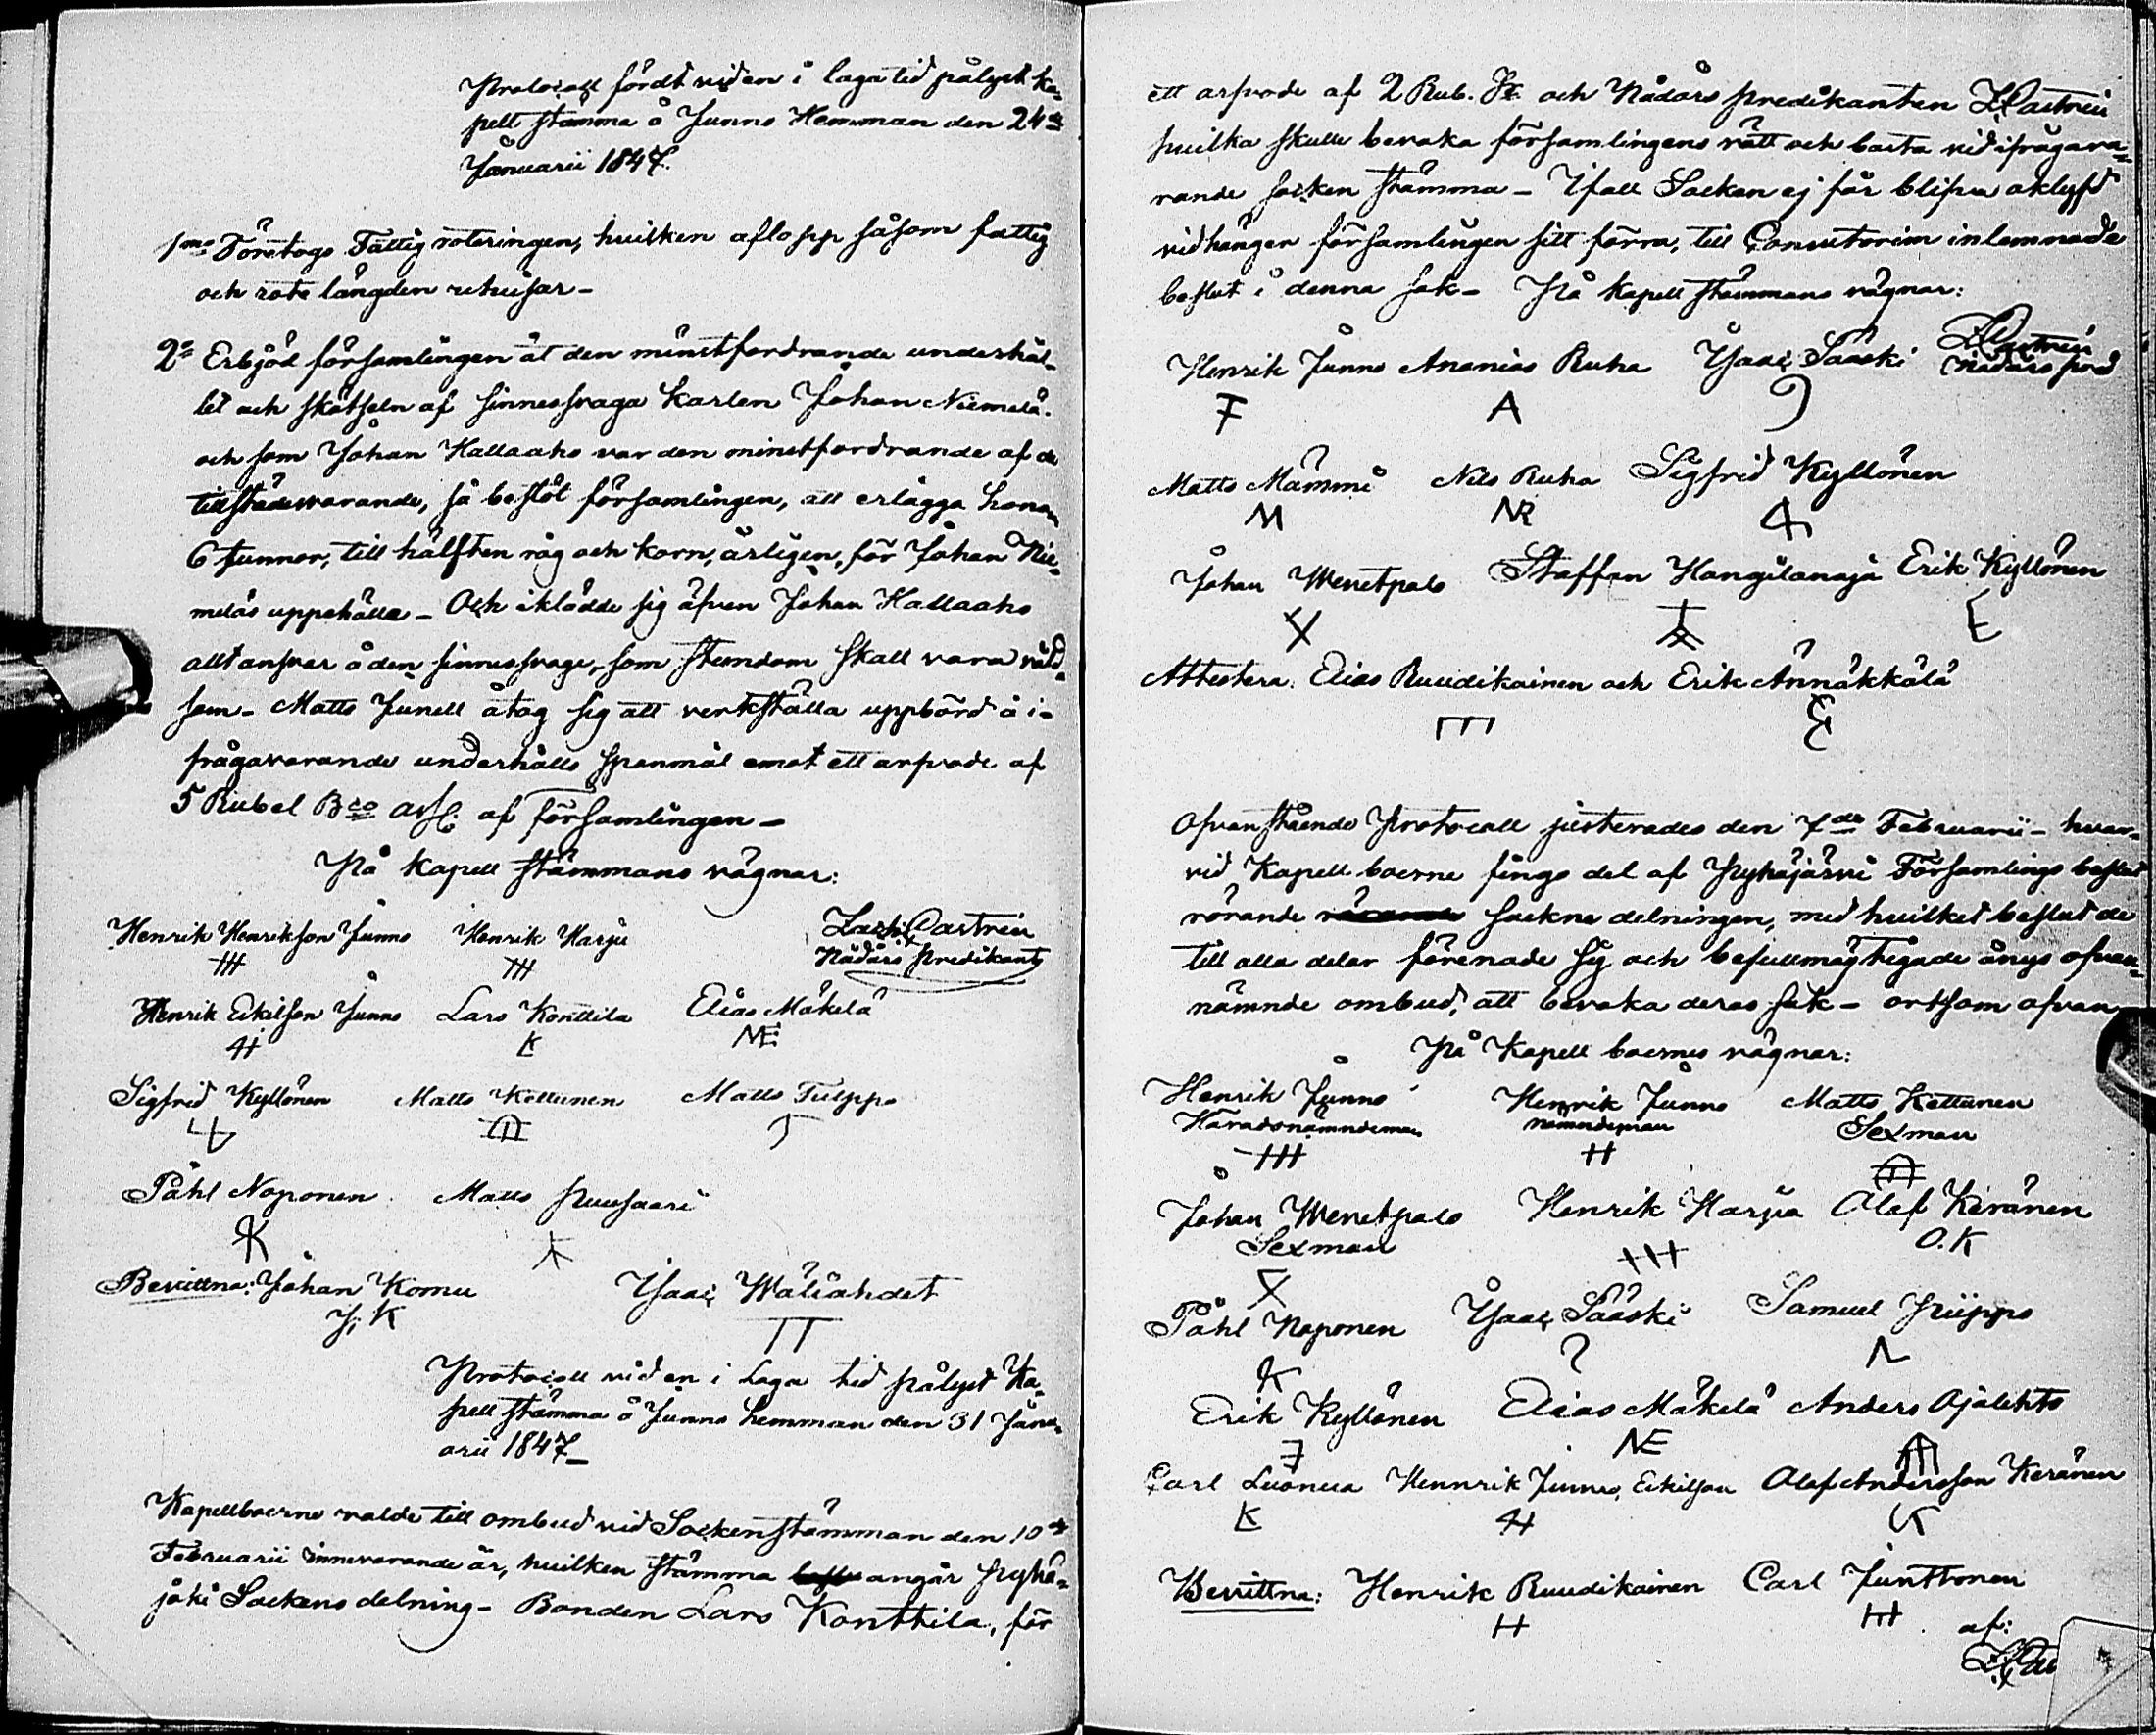 Protocoll fördt vid en i laga tid pålyst Ka-
pell stämma å Junno Hemman den 24de
Januarii 1847.
1mo Företogs Fattig roteringen, hvilken aflopp såsom fattig
och rote längden utvisar –
2o Erbjöd församlingen åt den minstfordrande underhål-
let och skötseln af sinnessvaga karlen Johan Niemelä.
och som Johan Hallaaho var den minstfordrande af de
tillstädesvarande, så beslöt församlingen, att erlägga honom
6 tunnor, till hälften råg och korn, årligen, för Johan Nie-
meläs uppehälle – Och iklädde sig äfven Johan Hallaaho
allt ansvar å den sinnessvage, som stundom skall vara våld-
sam – Matts Junell åtog sig att verkställa uppbörd å i-
frågavarande underhålls spanmål emot ett arfvode af
5 Rubel Bco af församlingen –
På kapell stämmans vägnar:
Henrik Henrikson Junno Henrik Harju Zach: Castrén
Nådårs Predikant
Henrik Eskilson Junno Lars Konttila Elias Mäkelä
NE
Sigfrid Kyllönen Matts Kettunen Matts Tulppo
Påhl Noponen Matts Puusaari
K
Bevittna: Johan Komu Isaac Wäliahdet
J. K
Protocoll vid en i Laga tid pålyst Ka-
pell stämma å Junno hemman den 31 Janu-
arii 1847 –
Kapellboerne valde till ombud vid Sockenstämman den 10de
Februarii innevarande år, hvilken stämma angår Pyhä-
joki Sockens delning – Bonden Lars Konttila, för
ett arfvode af 2 Rub. och Nådårs predikanten Z. Castrén
hvilka skulle bevaka församlingens rätt och basta vid ifrågava-
rande socken stämma – Ifall Socken ej får blifva aklyfd
vidhänger församlingen sitt förra, till Consistorium inlemnade
beslut i denna sak – På kapell stämmans vägnar:
Henrik Junno Ananias Ruha Isaac Sääski Z. Castrén
Nådårs pred
F A
Matts Mämmi Nils Ruha Sigfrid Kyllönen
M NR
Johan Wenetpalo Staffan Kangilanaja Erik Kyllönen
E
Attestera: Elias Ruudikainen och Erik Ännäkkälä
Ofvanstående Protocoll justerades den 7de Februarii – hvar-
vid Kapell boerne fingo del af Pyhäjärvi Församlings beslut
rörande sockne delningen, med hvilket beslut de
till alla delar förenade sig och befullmägtigade ånyo ofvan-
nämnde ombud, att bevaka deras sak – ort som ofvan
På Kapell boernes vägnar:
Henrik Junno Henrik Junno Matts Kettunen
Häradsnämndeman nämndeman Sexman
H
Johan Wenetpalo Henrik Harju Olof Keränen
Sexman O. K
Påhl Noponen Isaac Sääski Samuel Piippo
K
Erik Kyllönen Elias Mäkelä Anders Ojalehto
NE
Carl Luonua Hennrik Junno, Eskilson Olof Andersson Keränen
Bevittna: Henrik Ruudikainen Carl Junttonen
H
af: